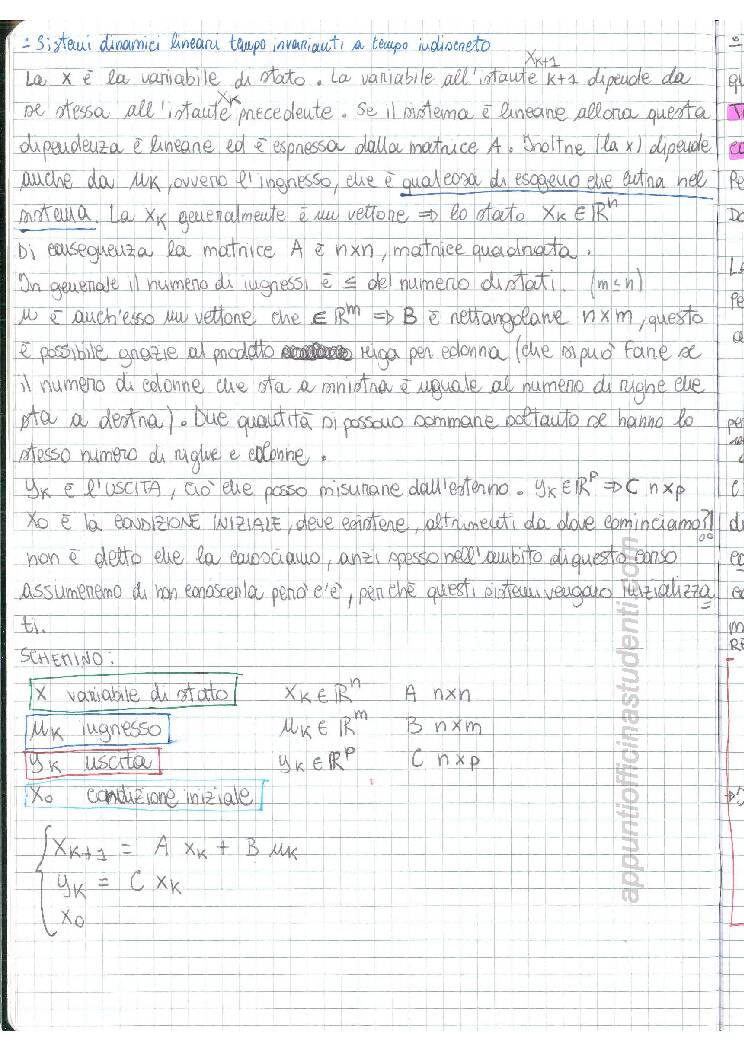 - Sistemi dinamici lineari tempo invarianti a tempo indiscreto
x_{k+1}
La x è la variabile di stato. La variabile all'istante k+1 dipende da
x_k
se stessa all'istante precedente. Se il sistema è lineare allora questa
dipendenza è lineare ed è espressa dalla matrice A. Inoltre (la x) dipende
anche da u_k, ovvero l'ingresso, che è qualcosa di esogeno che entra nel
sistema. La x_k generalmente è un vettore ⇒ lo stato x_k ∈ ℝ^n
Di conseguenza la matrice A è n×n, matrice quadrata.
In generale il numero di ingressi è ≤ del numero di stati. (m≤n)
u è anch'esso un vettore che ∈ ℝ^m ⇒ B è rettangolare n×m, questo
è possibile grazie al prodotto riga per colonna (che si può fare se
il numero di colonne che sta a sinistra è uguale al numero di righe che
sta a destra). Due quantità si possono sommare soltanto se hanno lo
stesso numero di righe e colonne.
y_k è l'USCITA, ciò che posso misurare dall'esterno. y_k ∈ ℝ^p ⇒ C n×p
x_0 è la CONDIZIONE INIZIALE, deve esistere, altrimenti da dove cominciamo?!
non è detto che la conosciamo, anzi spesso nell'ambito di questo corso
assumeremo di non conoscerla però c'è, perchè questi sistemi vengano inizializza
ti.
SCHEMINO:
x variabile di stato x_k ∈ ℝ^n A n×n
u_k ingresso u_k ∈ ℝ^m B n×m
y_k uscita y_k ∈ ℝ^p C n×p
x_0 condizione iniziale
x_{k+1} = A x_k + B u_k
y_k = C x_k
x_0
appuntiofficinastudenti.com